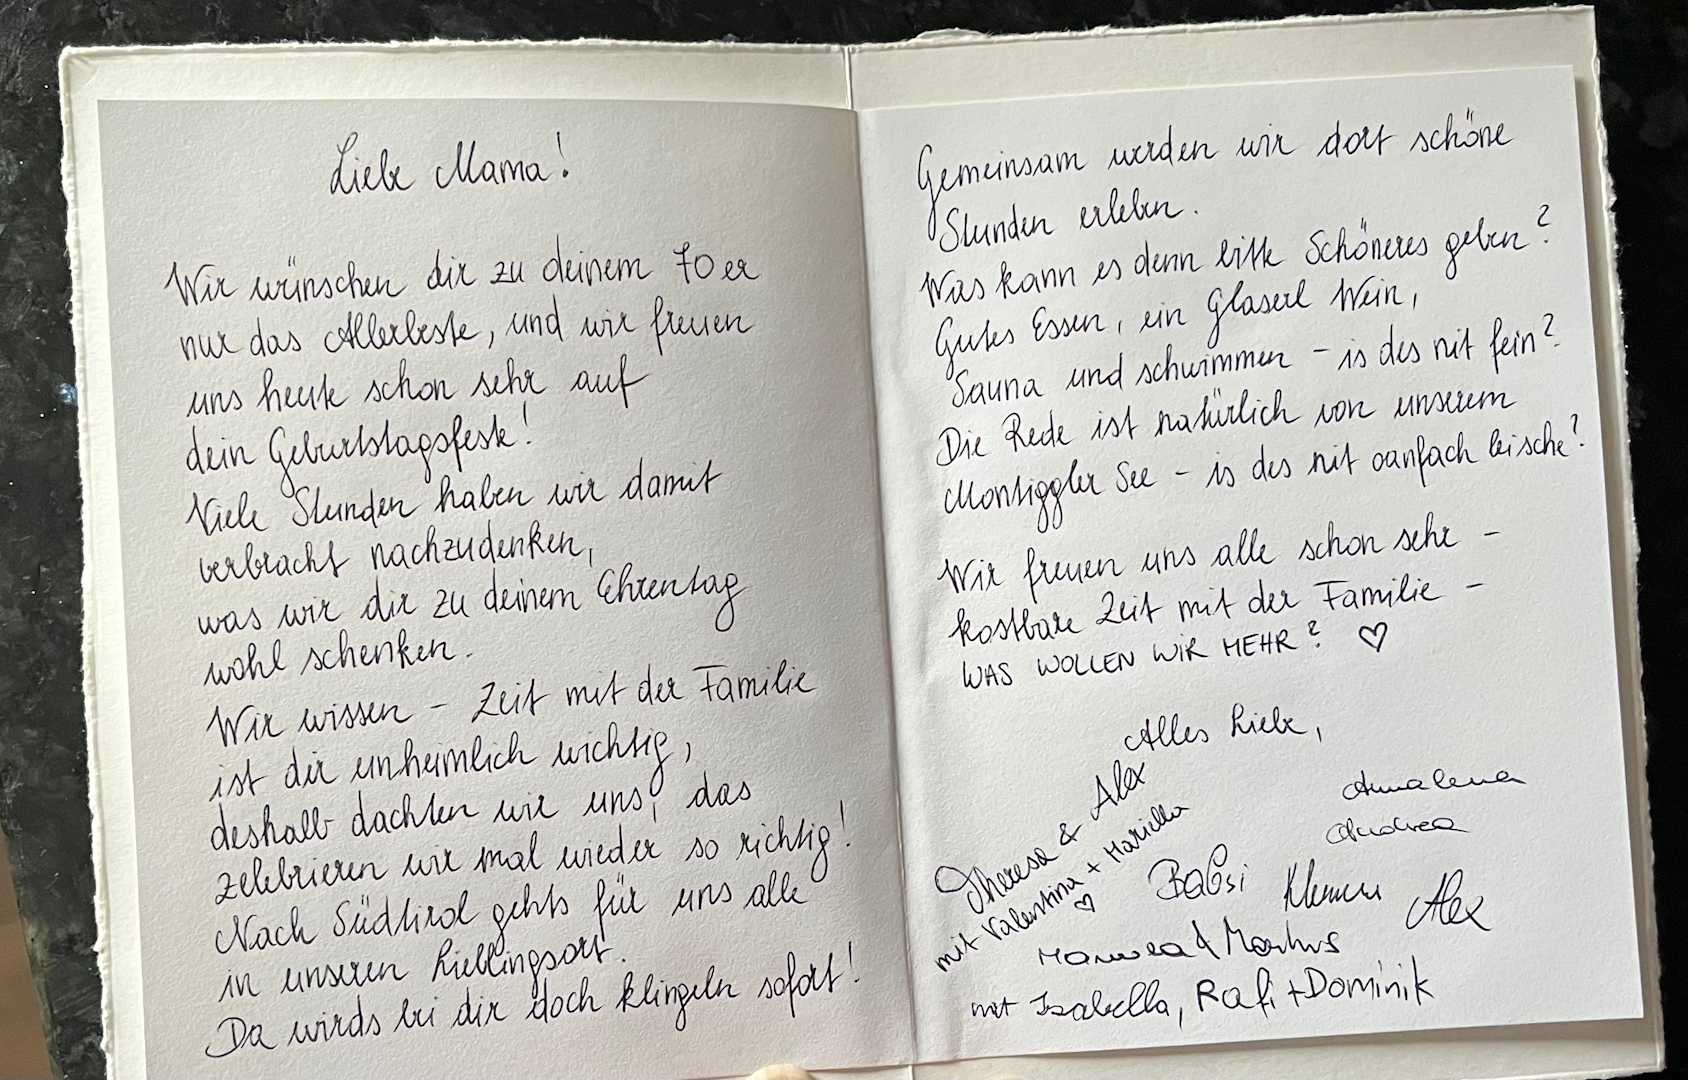 Liebe Mama!
Wir wünschen dir zu deinem 70er
nur das Allerbeste, und wir freuen
uns heute schon sehr auf
dein Geburtstagsfeste!
Viele Stunden haben wir damit
verbracht nachzudenken,
was wir dir zu deinem Ehrentag
wohl schenken.
Wir wissen - Zeit mit der Familie
ist dir unheimlich wichtig,
deshalb dachten wir uns, das
zelebrieren wir mal wieder so richtig!
Nach Südtirol gehts für uns alle
in unseren Lieblingsort.
Da wirds bei dir doch klingeln sofort!
Gemeinsam werden wir dort schöne
Stunden erleben.
Was kann es denn bitte Schöneres geben?
Gutes Essen, ein Glaserl Wein,
Sauna und schwimmen - is des nit fein?
Die Rede ist natürlich von unserem
Montiggler See - is des nit oanfach leische?
Wir freuen uns alle schon sehr -
kostbare Zeit mit der Familie -
WAS WOLLEN WIR MEHR? ♡
Alles Liebe,
Theresa & Alex
mit Valentina + Mariella
♡
Annalena
Andrea
Babsi Klemens Alex
& Markus
mit Isabella, Rafi + Dominik